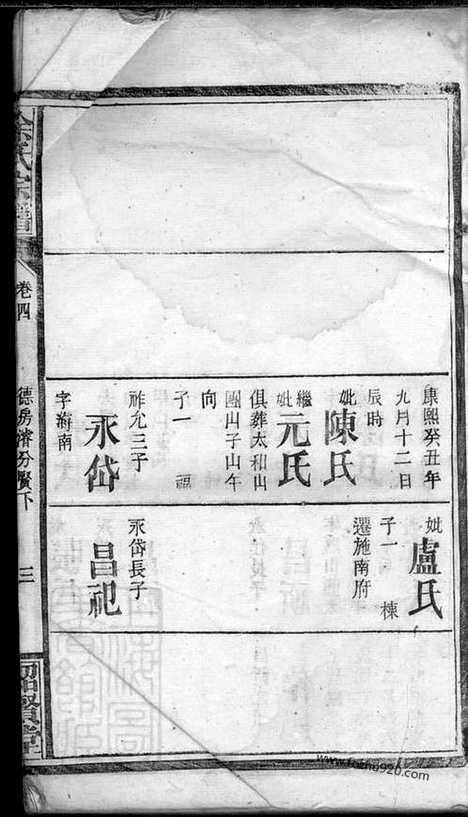 康熙癸丑年
九月十二日
辰時
妣陳氏
繼妣元氏
俱葬太和山
團山子山午
向
子一 福
祚允三子
永岱
字海南
妣盧氏
子一 棟
遷施南府
永岱長子
昌祀
氏宗譜
卷四
德房濬分賢下
三
紹賢堂
www.fozhu920.com